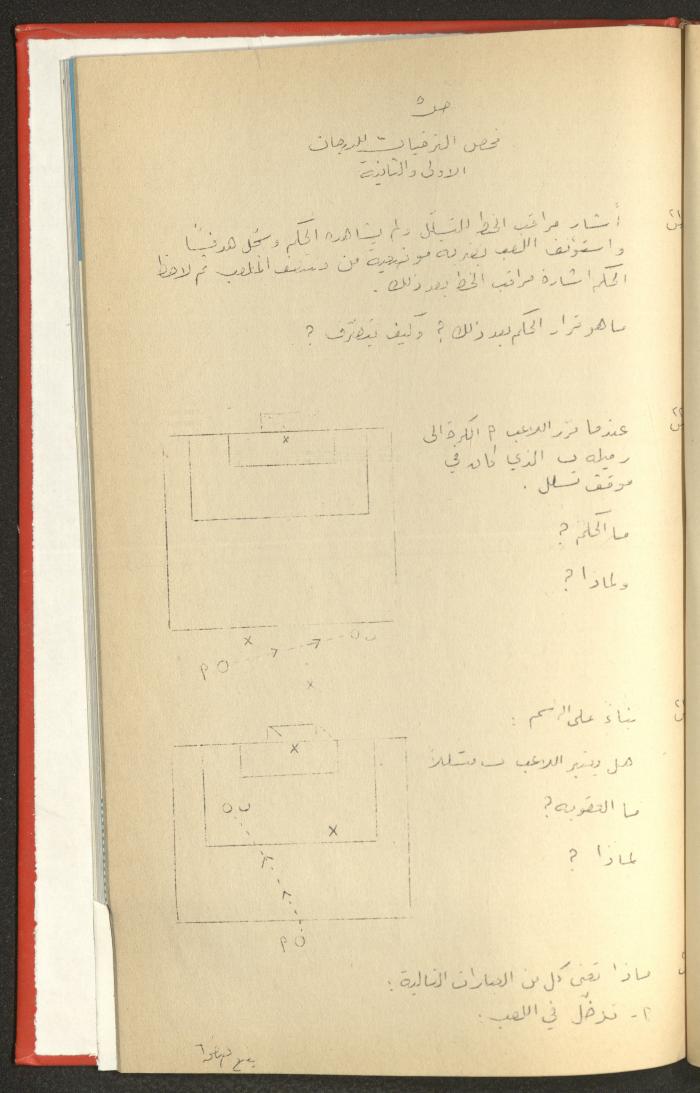 ص ٥
فحص الترقيات للدرجات
الاولى والثانية
أشار مراقب الخط للتسلل ولم يشاهده الحكم وسُجل هدف
واستؤنف اللعب بضربة من منتصف الملعب ثم لاحظ
الحكم اشارة مراقب الخط بعد ذلك .
ما هو قرار الحكم بعد ذلك ؟ وكيف يتصرف ؟
عندما مرر اللاعب م الكرة الى
زميله ب الذي كان في
موقف تسلل .
ما الحكم ؟
ولماذا ؟
x
x
م
ب
x
بناءً على الرسم :
هل يعتبر اللاعب ب متسللاً
ما العقوبه ؟
لماذا ؟
x
ب
x
م
ماذا تعني كل من العبارات التالية :
م - تدخّل في اللعب .
يتبع صفحة ٦